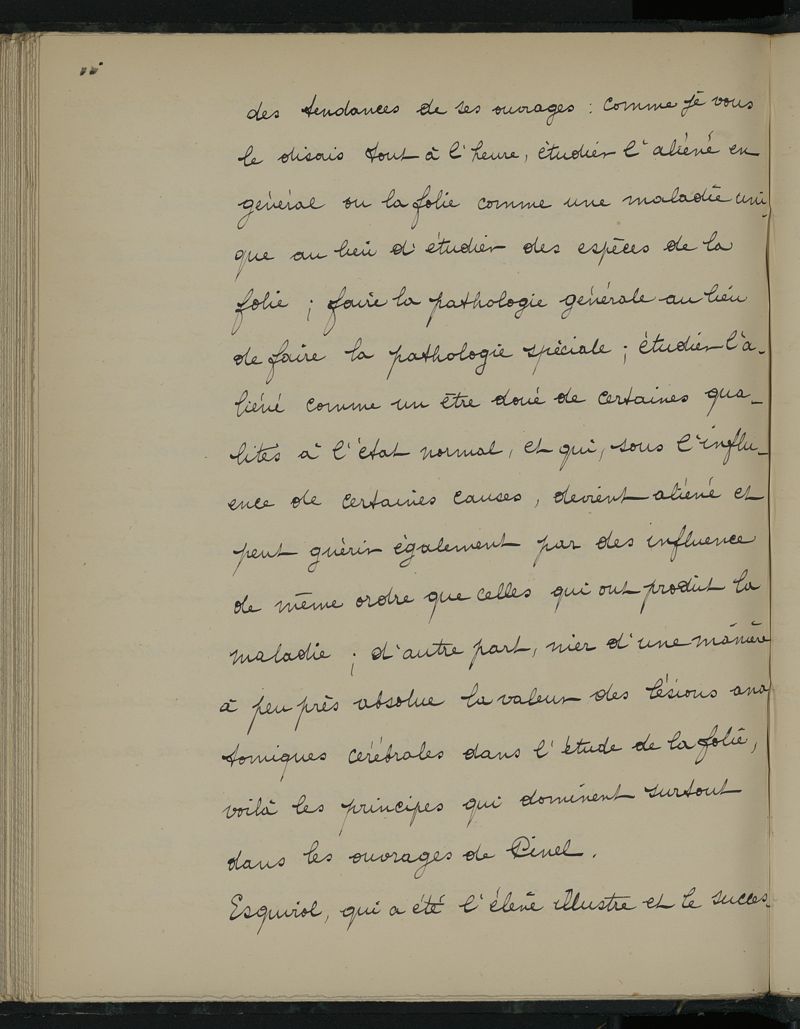 des tendances de ses ouvrages : comme je vous
le disais tout à l'heure, étudier l'aliéné en
général ou la folie comme une maladie uni-
que au lieu d'étudier des espèces de la
folie ; faire la pathologie générale au lieu
de faire la pathologie spéciale ; étudier l'a-
liéné comme un être doué de certaines qua-
lités à l'état normal, et qui, sous l'influ-
ence de certaines causes, devient aliéné et
peut guérir également par des influence
de même ordre que celles qui ont produit la
maladie ; d'autre part, nier d'une manière
à peu près absolue la valeur des lésions ana
tomiques cérébrales dans l'étude de la folie,
voilà les principes qui dominent surtout
dans les ouvrages de Pinel.
Esquirol, qui a été l'élève illustre et le succes-